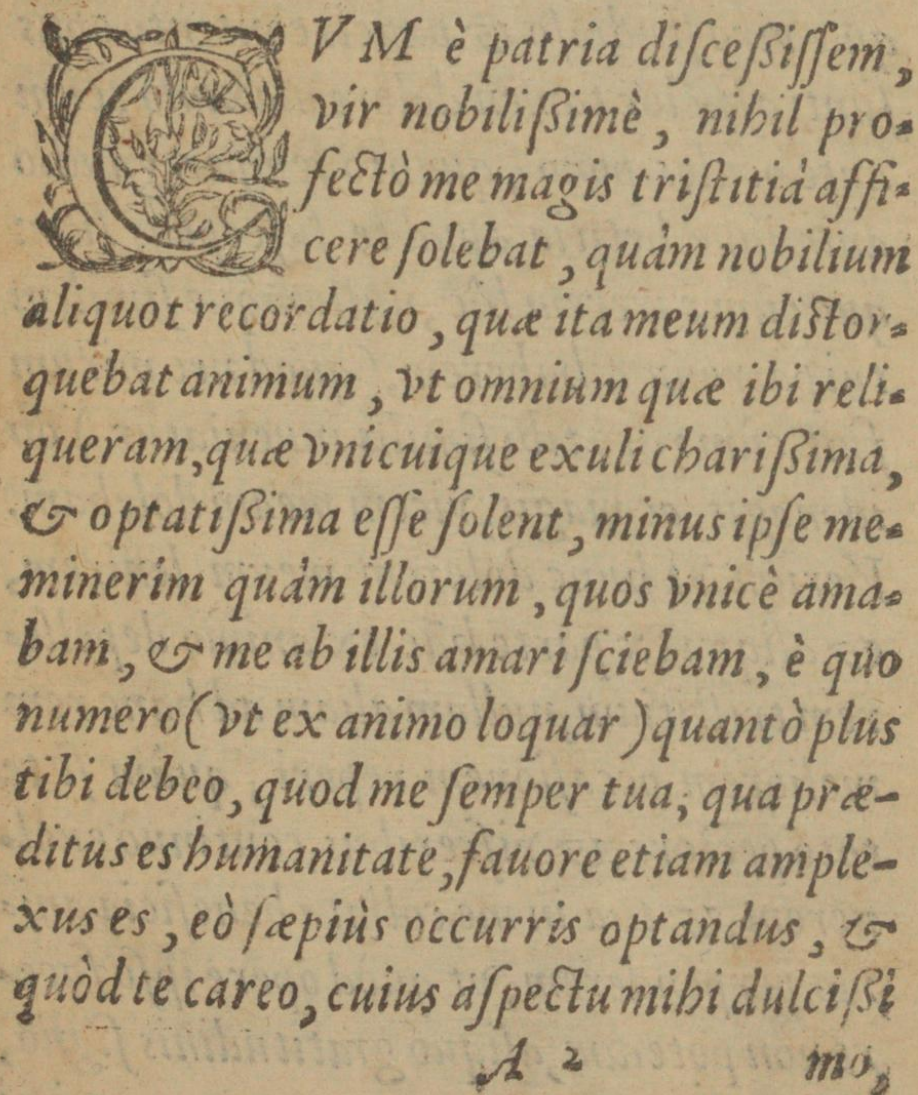 CVM è patria diſceßiſſem,
vir nobilißimè, nihil pro-
fectò me magis triſtitiâ affi-
cere ſolebat, quàm nobilium
aliquot recordatio, quæ ita meum diſtor-
quebat animum, vt omnium quæ ibi reli-
queram, quæ vnicuique exuli charißima,
& optatißima eſſe ſolent, minus ipſe me-
minerim quàm illorum, quos vnicè ama-
bam, & me ab illis amari ſciebam, è quo
numero (vt ex animo loquar) quantò plus
tibi debeo, quod me ſemper tua, qua præ-
ditus es humanitate, fauore etiam ample-
xus es, eò ſæpiùs occurris optandus, &
quòd te careo, cuius aſpectu mihi dulcißi
A 2 mo,